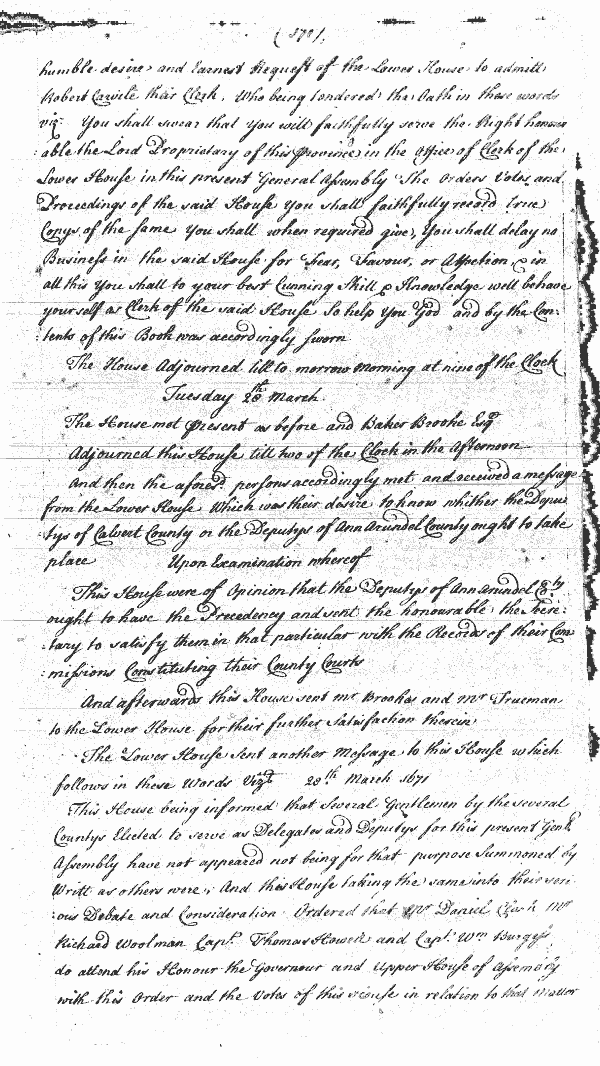 humble desire and Earnest Request of the Lower House to admitt
Robert Carvile their Clerk, Who being tendered the Oath in these words
vizt. You shall swear that You will faithfully serve the Right honour
able the Lord Proprietary of this Province in the Office of Clerk of the
Lower House in this present General Assembly The Orders Votes and
Proceedings of the said House You shall faithfully record true
Copys of the same You shall when required give, You shall delay no
Business in the said House for Fear, Favour, or Affection, & in
all this You shall to your best Cunning Skill & Knowledge well behave
yourself as Clerk of the said House So help You God and by the Con:
:tents of this Book was accordingly sworn
The House Adjourned till to morrow Morning at nine of the Clock
Tuesday 28th March
The House met Present as before and Baker Brooke Esqr
Adjourned this House till two of the Clock in the Afternoon
And then the aforesd. persons accordingly met and received a message
from the Lower House Which was their desire to know whither the Depu
tys of Calvert County or the Deputys of Ann Arundel County ought to take
place Upon Examination whereof
This House were of Opinion that the Deputys of Ann Arundel Coty
ought to have the Precedency and sent the honourable the Secre:
:tary to satisfy them in that particular with the Records of their Com
missions Constituting their County Courts
And afterwards this House sent Mr Brookes and Mr Trueman
to the Lower House for their further Satisfaction therein
The Lower House sent another Message to this House which
follows in these Words Vizt 28th March 1671
This House being informed that Several Gentlemen by the several
Countys Elected to serve as Delegates and Deputys for this present Genll
Assembly have not appeared not being for that purpose Summoned by
Writt as others were, And this House taking the same into their seri
ous Debate and Consideration Ordered that Mr Daniel Mr
Richard Woolman Capt. Thomas Howell and Capt. Wm Burgess
do attend his Honour the Governour and Upper House of Assembly
with this Order and the Votes of this House in relation to that Matter